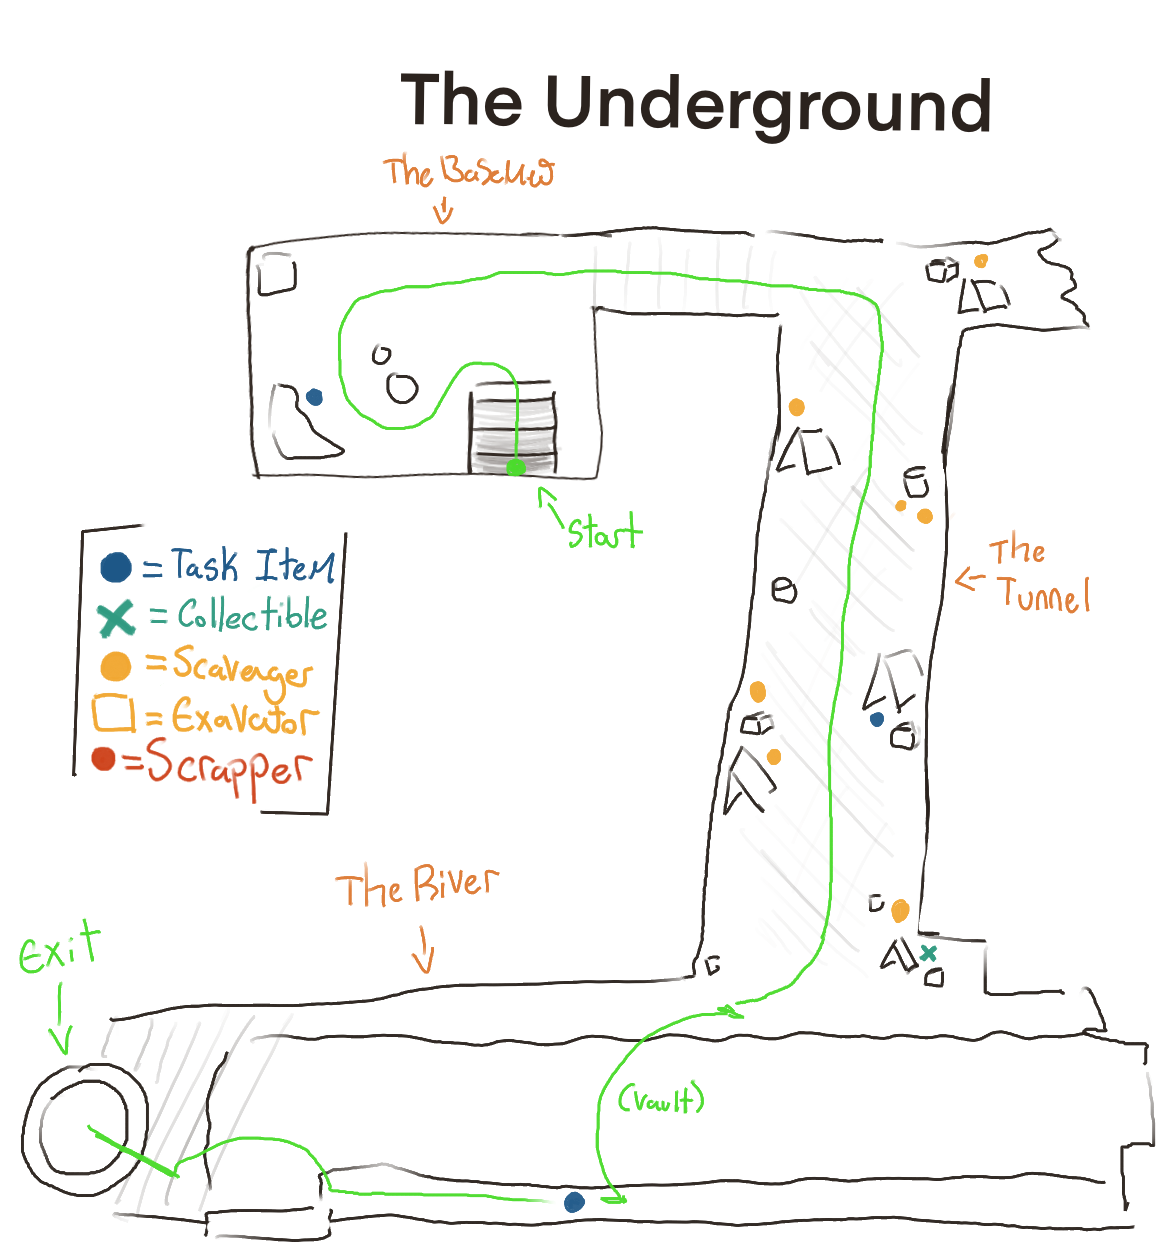 The Underground
The
Start
= Task Item
= Collectible
= Scavenger
= Exavator
= Scrapper
The
Tunnel
The River
Exit
(Vault)